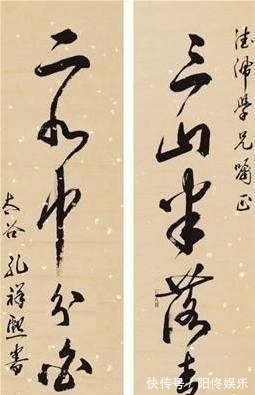 德沛學兄囑正
三山半落青
二水中分白
太谷孔祥熙書
快传号/阳佟娱乐